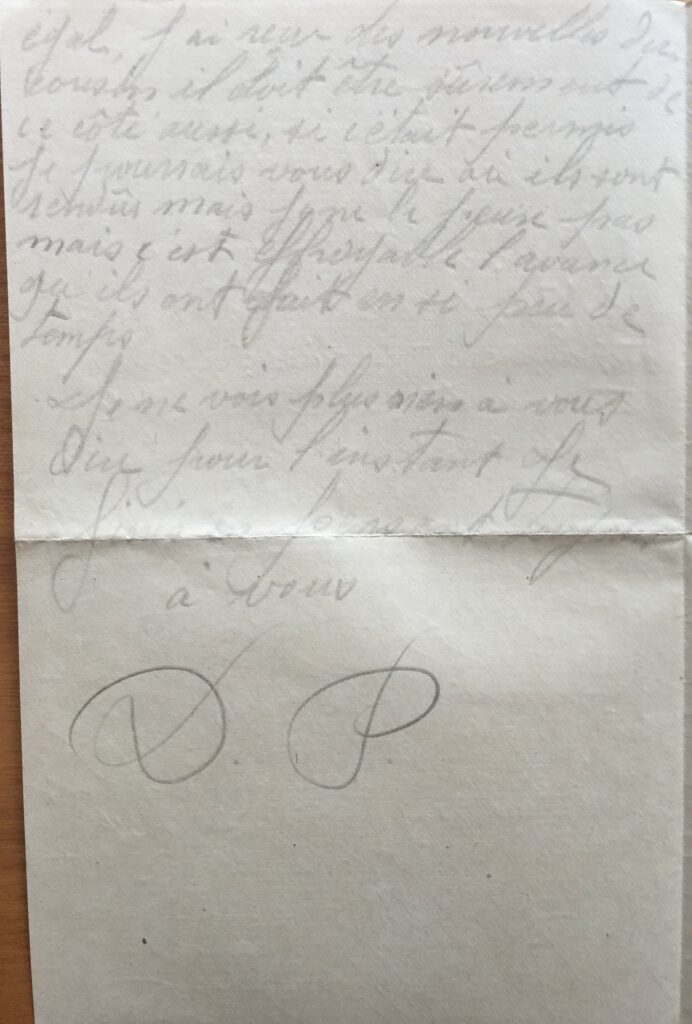 égal, j'ai reçu des nouvelles du
cousin il doit être sûrement de
ce côté aussi, si c'était permis
je pourrais vous dire où ils sont
rendûs mais je ne le peux pas
mais c'est effroyable l'avance
qu'ils ont fait en si peu de
temps
Je ne vois plus rien à vous
dire pour l'instant Je
finis en pensant toujours
à vous
D. P.